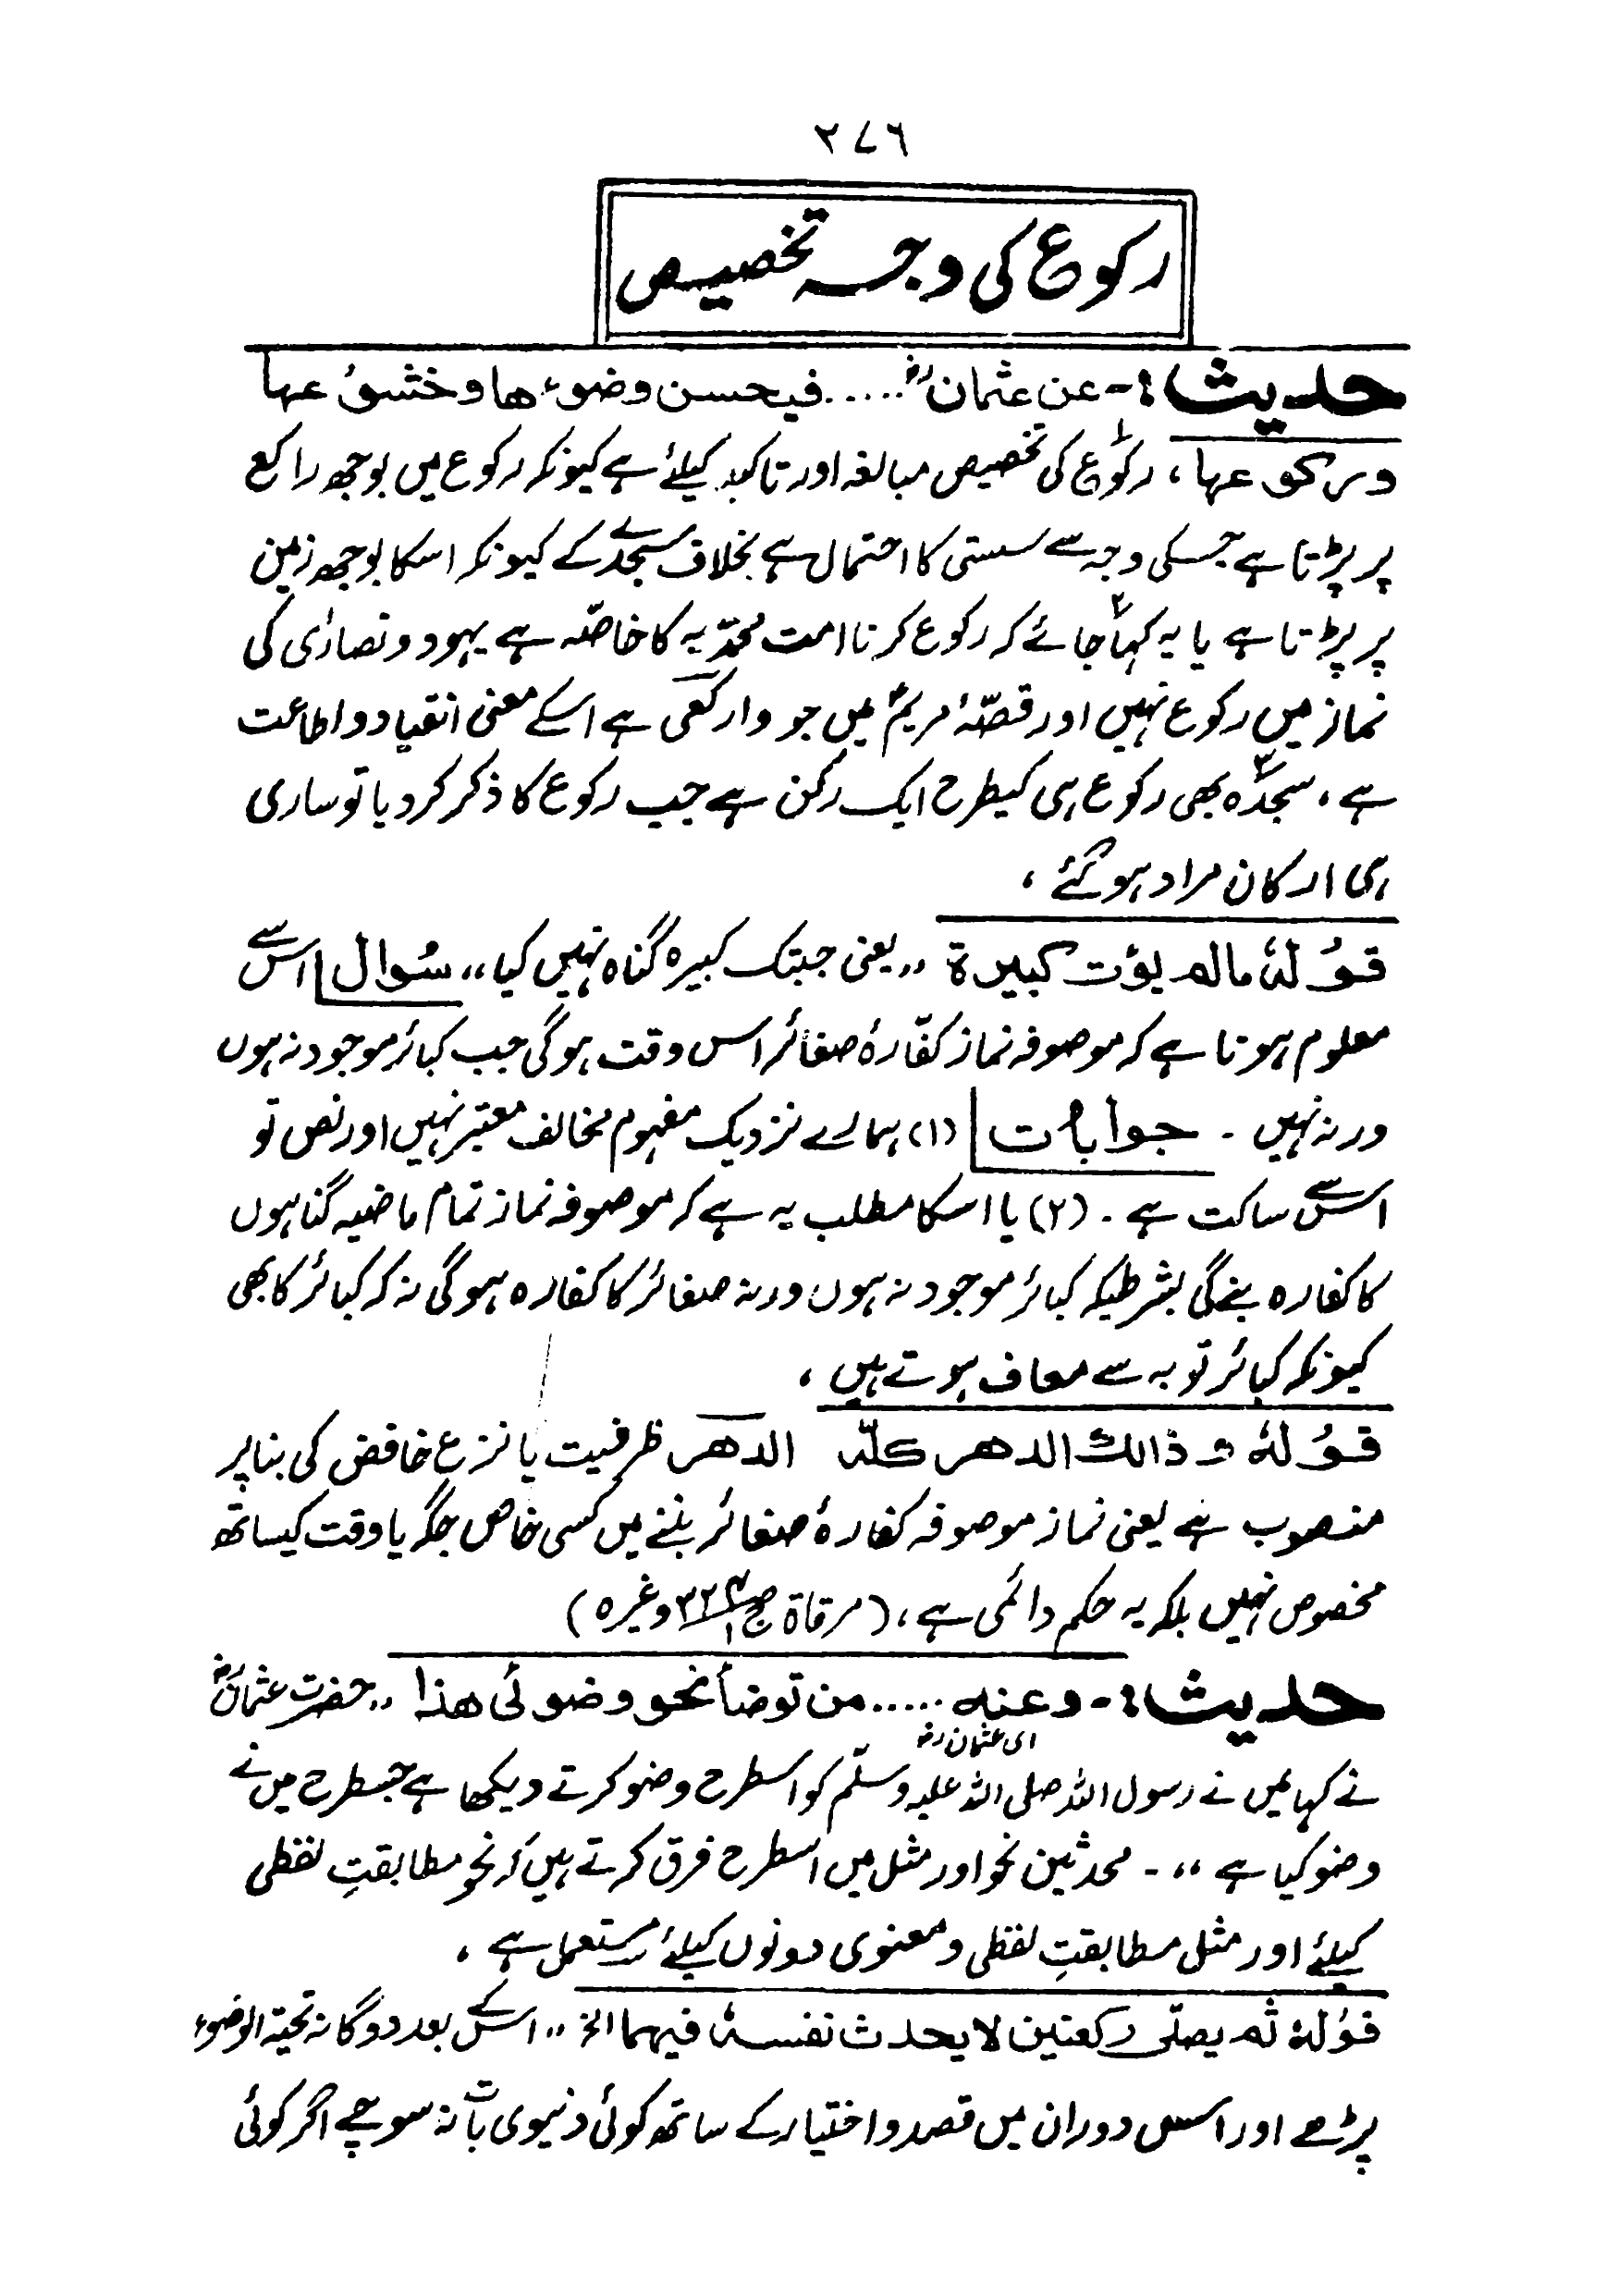 ۲۷٦
رکوع کی وجہ تخصیص
حدیث :- عن عثمانؓ ..... فیحسن وضوءها وخشوعها
ورکوعها، رکوع کی تخصیص مبالغہ اور تاکید کیلئے ہے کیونکہ رکوع میں بوجھ راکع
پر پڑتا ہے جسکی وجہ سے سستی کا احتمال ہے بخلاف سجدے کے کیونکہ اسکا بوجھ زمین
پر پڑتا ہے یا یہ کہا جائے کہ رکوع کرنا امت محمدّیہ کا خاصّہ ہے یہود و نصارٰی کی
نماز میں رکوع نہیں اور قصّۂ مریمؑ میں جو وارکعی ہے اسکے معنی انقیاد و اطاعت
ہے، سجدہ بھی رکوع ہی کیطرح ایک رکن ہے جب رکوع کا ذکر کردیا تو ساری
ہی ارکان مراد ہوگئے ،
قولہٗ مالم یؤت کبیرة ،، یعنی جبتک کبیرہ گناہ نہیں کیا ،، سُوال اس سے
معلوم ہوتا ہے کہ موصوفہ نماز کفّارۂ صغائر اس وقت ہوگی جب کبائر موجود نہ ہوں
ورنہ نہیں ۔ جوابات (۱) ہمارے نزدیک مفہوم مخالف معتبر نہیں اور نص تو
اس سے ساکت ہے ۔ (۲) یا اسکا مطلب یہ ہے کہ موصوفہ نماز تمام ماضیہ گناہوں
کا کفارہ بنے گی بشرطیکہ کبائر موجود نہ ہوں ورنہ صغائر کا کفارہ ہوگی نہ کہ کبائر کا بھی
کیونکہ کبائر توبہ سے معاف ہوتے ہیں ،
قولہٗ و ذالك الدهر کلّہ الدهر ظرفیت یا نزع خافض کی بنا پر
منصوب ہے یعنی نماز موصوفہ کفارۂ صغائر بننے میں کسی خاص جگہ یا وقت کیساتھ
مخصوص نہیں بلکہ یہ حکم دائمی ہے ، (مرقاة وغیرہ)
حدیث :- وعنہ ..... من توضأ نحو وضوئی هذا ،، حضرت عثمانؓ
ای عثمان رض
نے کہا میں نے رسول اللہ صلی اللہ علیہ وسلّم کو اسطرح وضو کرتے دیکھا ہے جسطرح میں نے
وضو کیا ہے ،، ۔ محدثین نحو اور مثل میں اسطرح فرق کرتے ہیں کہ نحو مطابقتِ لفظی
کیلئے اور مثل مطابقتِ لفظی و معنوی دونوں کیلئے مستعمل ہے ،
قولہٗ ثم یصلّی رکعتین لا یحدث نفسہٗ فیهما الخ ،، اسکے بعد دوگانہ تحیۃ الوضوء
پڑھے اور اس دوران میں قصد و اختیار کے ساتھ کوئی دنیوی بات نہ سوچے اگر کوئی